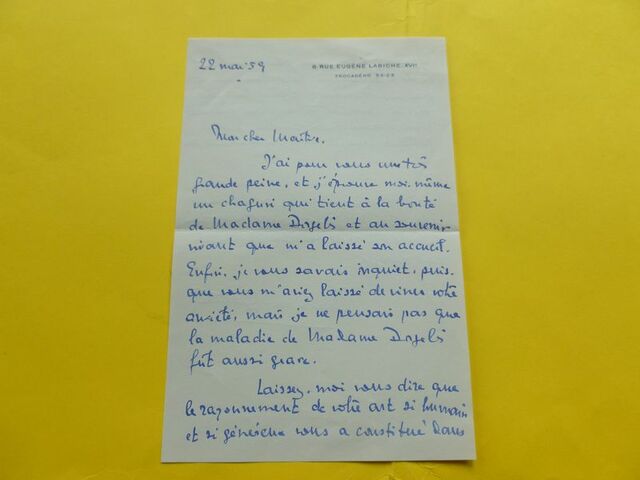 22 mai 59
8, RUE EUGÈNE LABICHE. XVIᵉ
TROCADÉRO
Mon cher Maître,
J'ai pour vous une très
grande peine, et j'éprouve moi-même
un chagrin qui tient à la bonté
de Madame Dorgelès et au souvenir
vivant que m'a laissé son accueil.
Enfin, je vous savais inquiet, puis-
que vous m'aviez laissé deviner votre
anxiété, mais je ne pensais pas que
la maladie de Madame Dorgelès
fût aussi grave.
Laissez-moi vous dire que
le rayonnement de votre art si humain
et si généreux vous a constitué dans